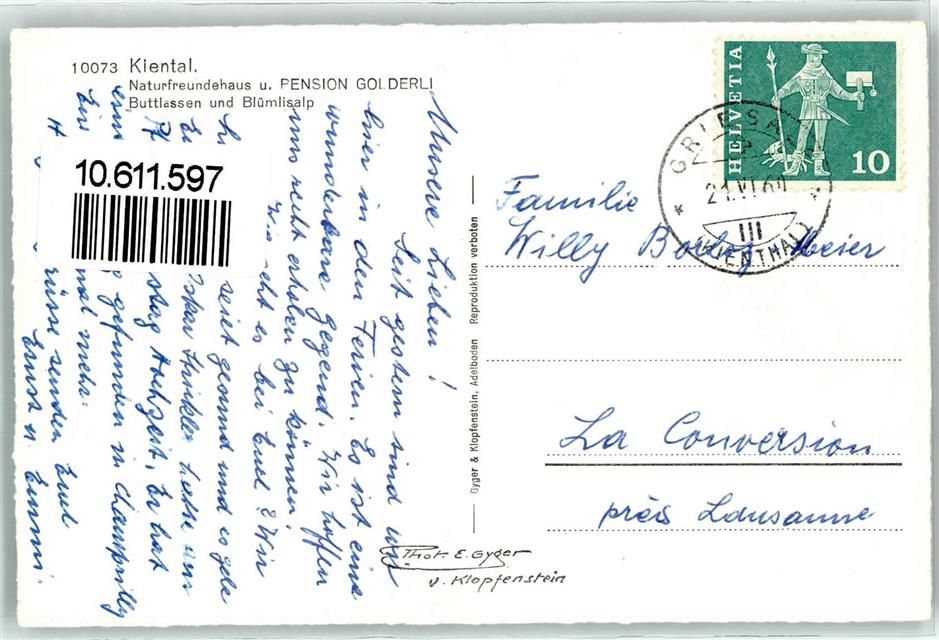 10073 Kiental.
Naturfreundehaus u. PENSION GOLDERLI
Buttlassen und Blümlisalp
10.611.597
Unsere Lieben!
Seit gestern sind wir
hier in den Ferien. Es ist eine
wunderbare Gegend. Wir hoffen
uns recht erholen zu können.
Wie geht es bei Euch? Wir
seiet gesund und es gehe
hatte
stag Hochzeit. Er hat
gefunden in
mal mehr.
senden Euch
Ernst u. Emmi.
Gyger & Klopfenstein, Adelboden Reproduktion verboten
Phot. E. Gyger
u. Klopfenstein
HELVETIA
10
GRIESALP
21.VI.60
III
(KIENTHAL)
Familie
Willy Meier
La Conversion
près Lausanne